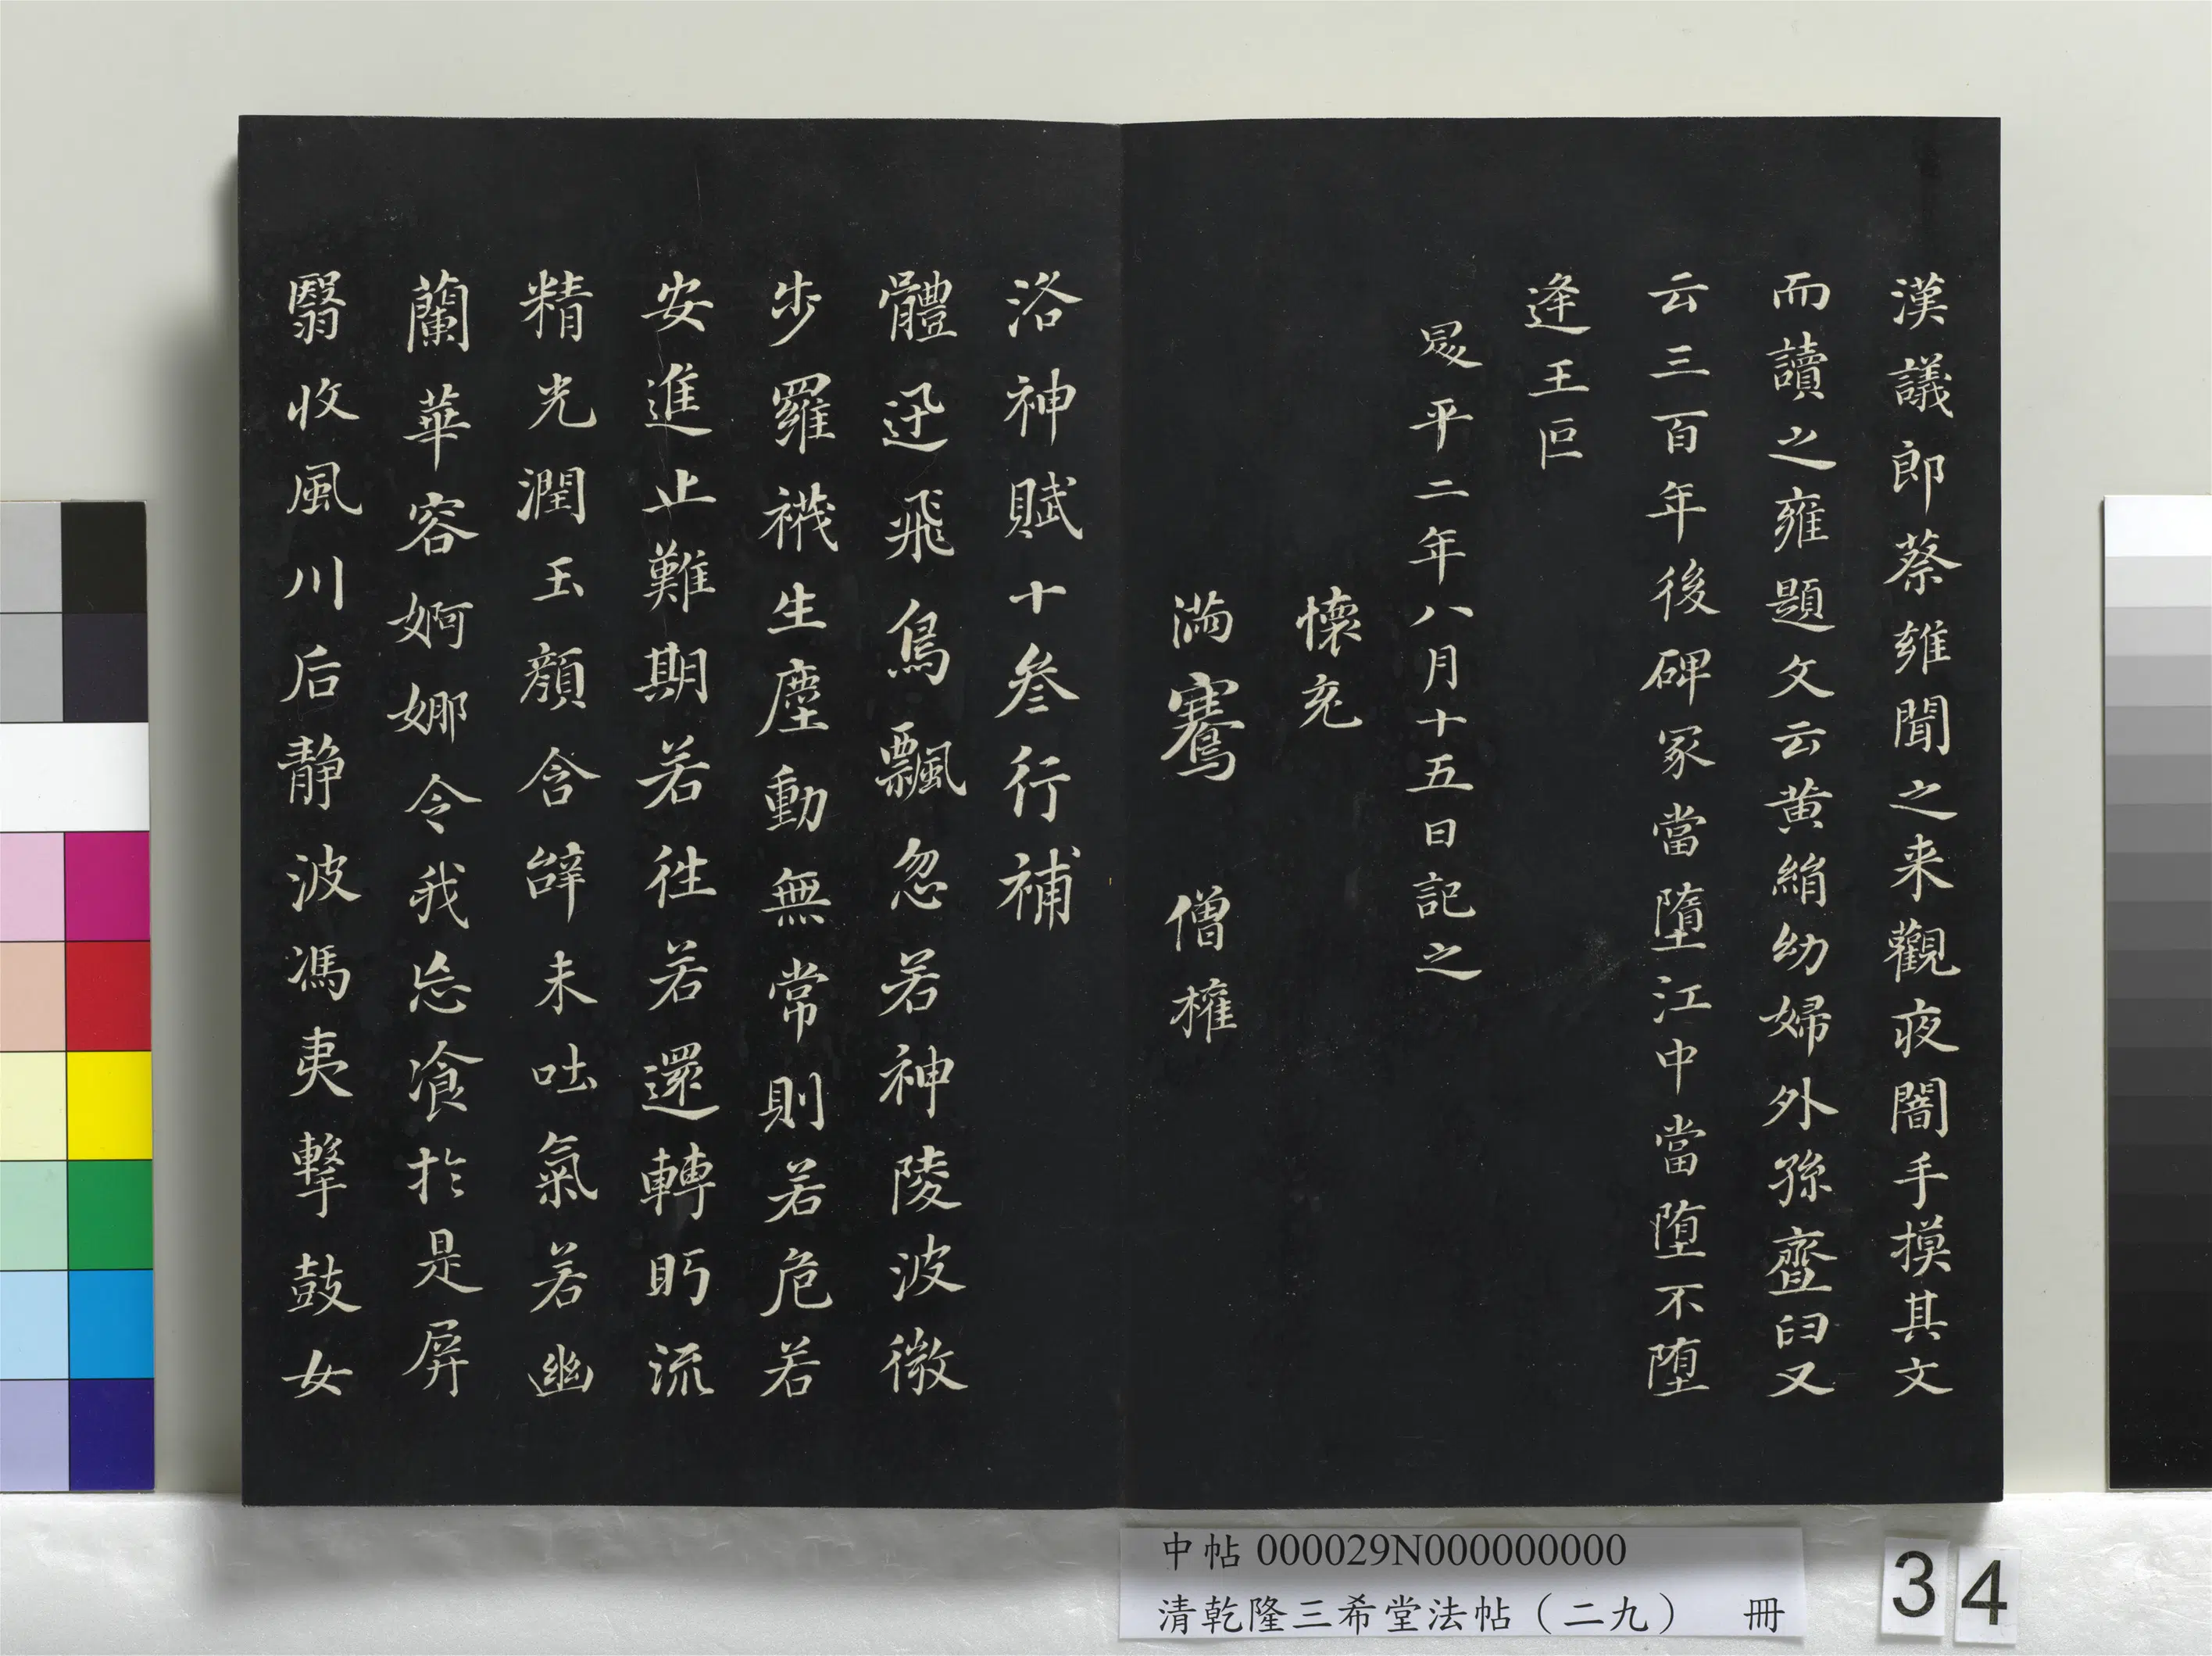 漢議郎蔡雍聞之来觀夜闇手摸其文
而讀之雍題文云黄絹幼婦外孫虀臼又
云三百年後碑冢當墮江中當堕不堕
逄王叵
平二年八月十五日記之
懷充
滿騫 僧權
洛神賦十叁行補
體迅飛鳥飄忽若神陵波微
步羅襪生塵動無常則若危若
安進止難期若往若還轉眄流
精光潤玉顏含辭未吐氣若幽
蘭華容婀娜令我忘飡於是屏
翳收風川后静波馮夷擊鼓女
中帖 000029N000000000
清乾隆三希堂法帖（二九） 冊
34